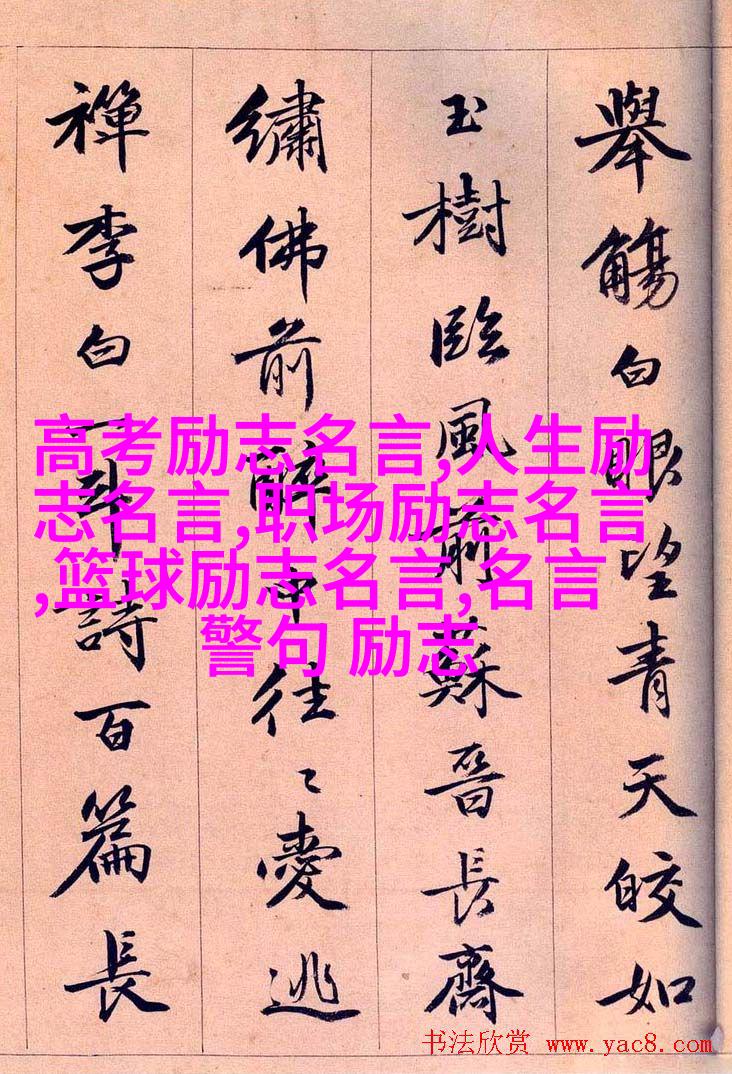 舉觴白眼望青天皎如
玉樹臨風前蘇晉長齋
繡佛前醉中往〻愛逃
禪李白一斗詩百篇長
高考励志名言,人生励
志名言,职场励志名言
,篮球励志名言,名言
警句 励志
书法欣赏 www.yac8.com